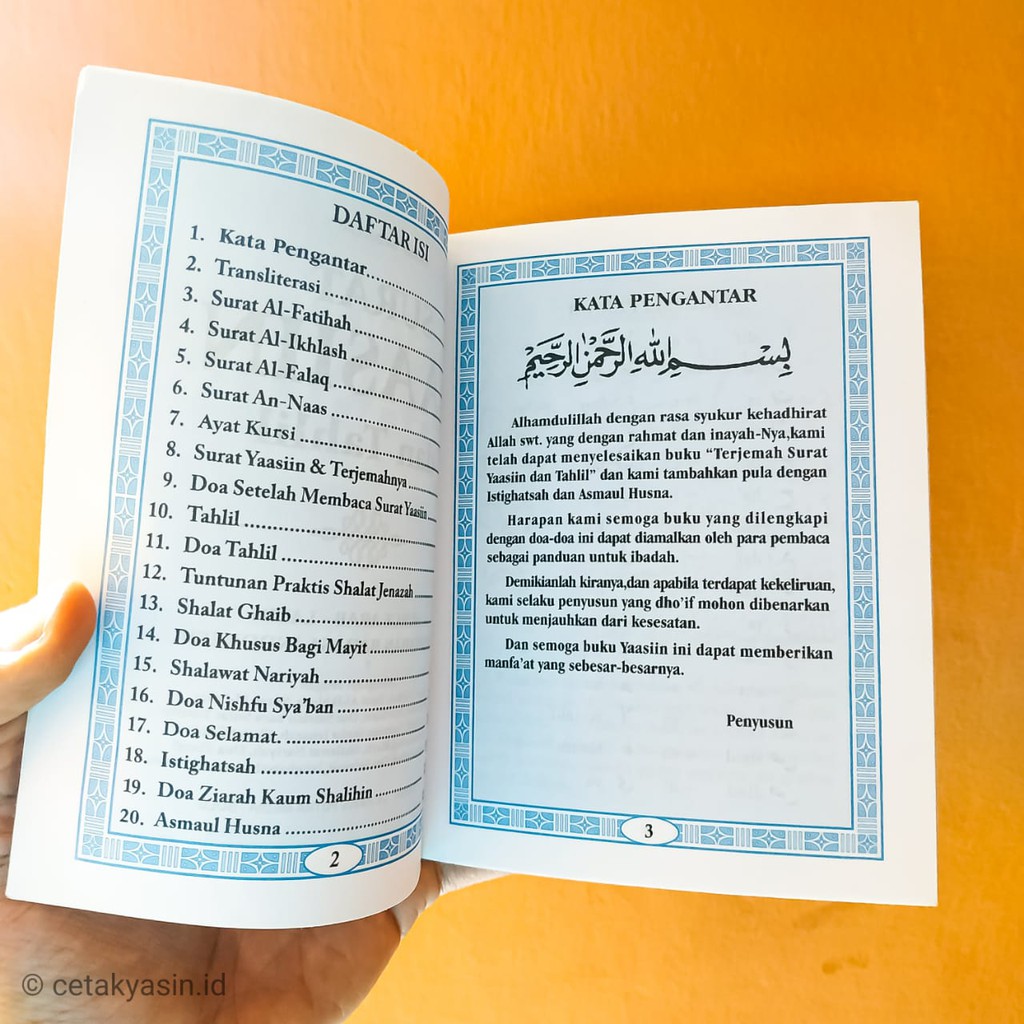 DAFTAR ISI
1. Kata Pengantar..................
2. Transliterasi ........................
3. Surat Al-Fatihah ..................
4. Surat Al-Ikhlash ..................
5. Surat Al-Falaq ......................
6. Surat An-Naas ......................
7. Ayat Kursi ............................
8. Surat Yaasiin & Terjemahnya ......
9. Doa Setelah Membaca Surat Yaasiin...
10. Tahlil ....................................
11. Doa Tahlil ..............................
12. Tuntunan Praktis Shalat Jenazah .....
13. Shalat Ghaib ............................
14. Doa Khusus Bagi Mayit ..............
15. Shalawat Nariyah ......................
16. Doa Nishfu Sya'ban ..................
17. Doa Selamat. ............................
18. Istighatsah ................................
19. Doa Ziarah Kaum Shalihin ..........
20. Asmaul Husna ..........................
2
KATA PENGANTAR
بِسْمِ اللّٰهِ الرَّحْمٰنِ الرَّحِيْمِ
Alhamdulillah dengan rasa syukur kehadhirat
Allah swt. yang dengan rahmat dan inayah-Nya,kami
telah dapat menyelesaikan buku “Terjemah Surat
Yaasiin dan Tahlil” dan kami tambahkan pula dengan
Istighatsah dan Asmaul Husna.
Harapan kami semoga buku yang dilengkapi
dengan doa-doa ini dapat diamalkan oleh para pembaca
sebagai panduan untuk ibadah.
Demikianlah kiranya,dan apabila terdapat kekeliruan,
kami selaku penyusun yang dho'if mohon dibenarkan
untuk menjauhkan dari kesesatan.
Dan semoga buku Yaasiin ini dapat memberikan
manfa'at yang sebesar-besarnya.
Penyusun
3
© cetakyasin.id